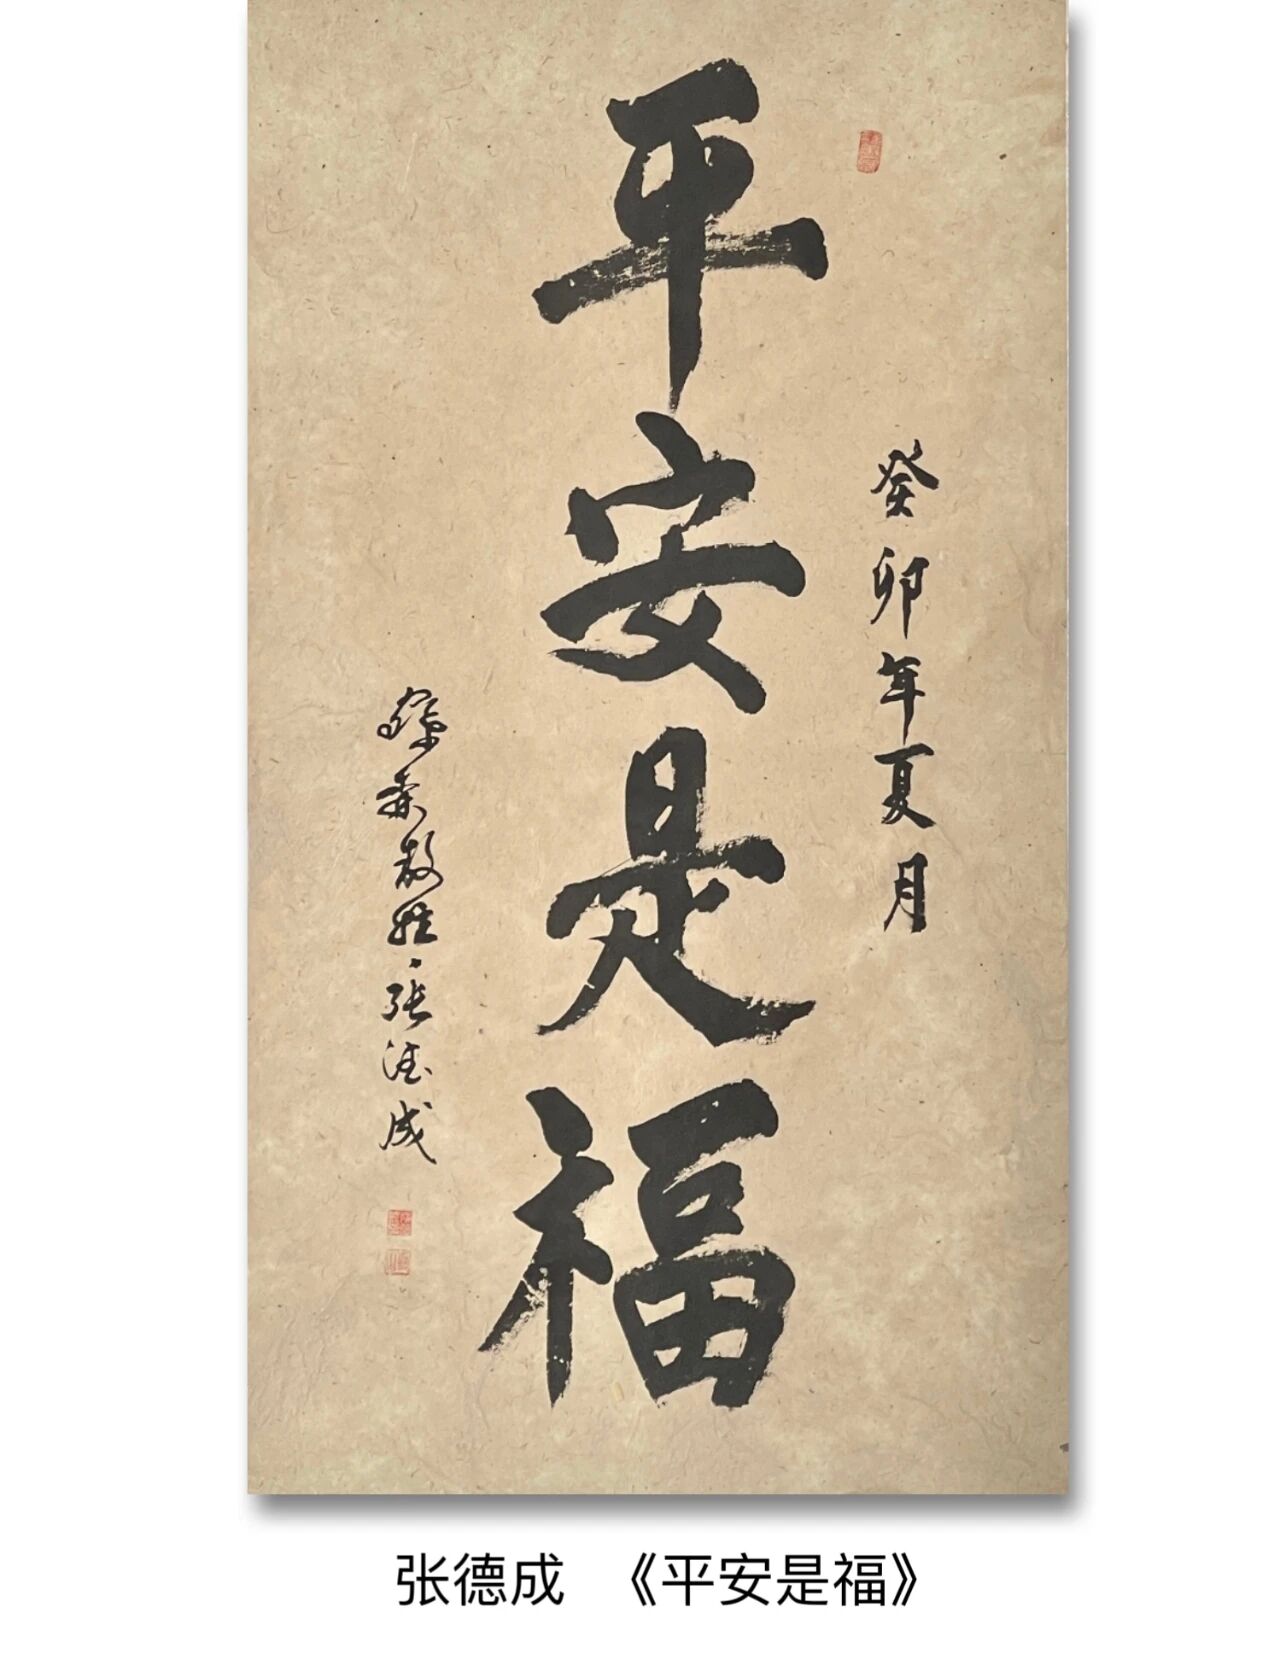 癸卯年夏月
平安是福
张德成
张德成 《平安是福》